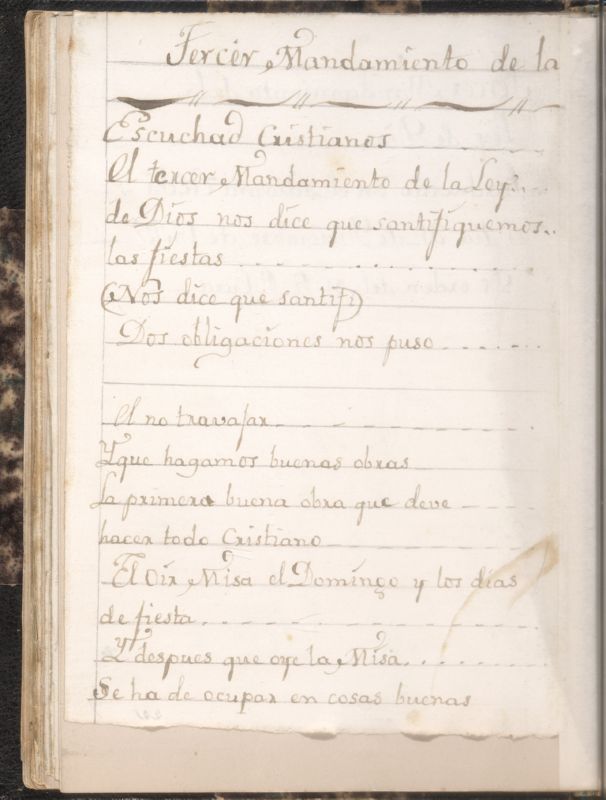 Tercer Mandamiento de la
Escuchad Cristianos
El tercer Mandamiento de la Ley...
de Dios nos dice que santifiquemos..
las fiestas . . . . . . . . . . . . . .
(Nos dice que santifi)
Dos obligaciones nos puso . . . . . . .
El no travajar
Y que hagamos buenas obras
La primera buena obra que deve
hacer todo Cristiano
El Oir Misa el Domingo y los dias
de fiesta . . . . . . . . . . . .
Y despues que oye la Misa . . . . . . .
Se ha de ocupar en cosas buenas